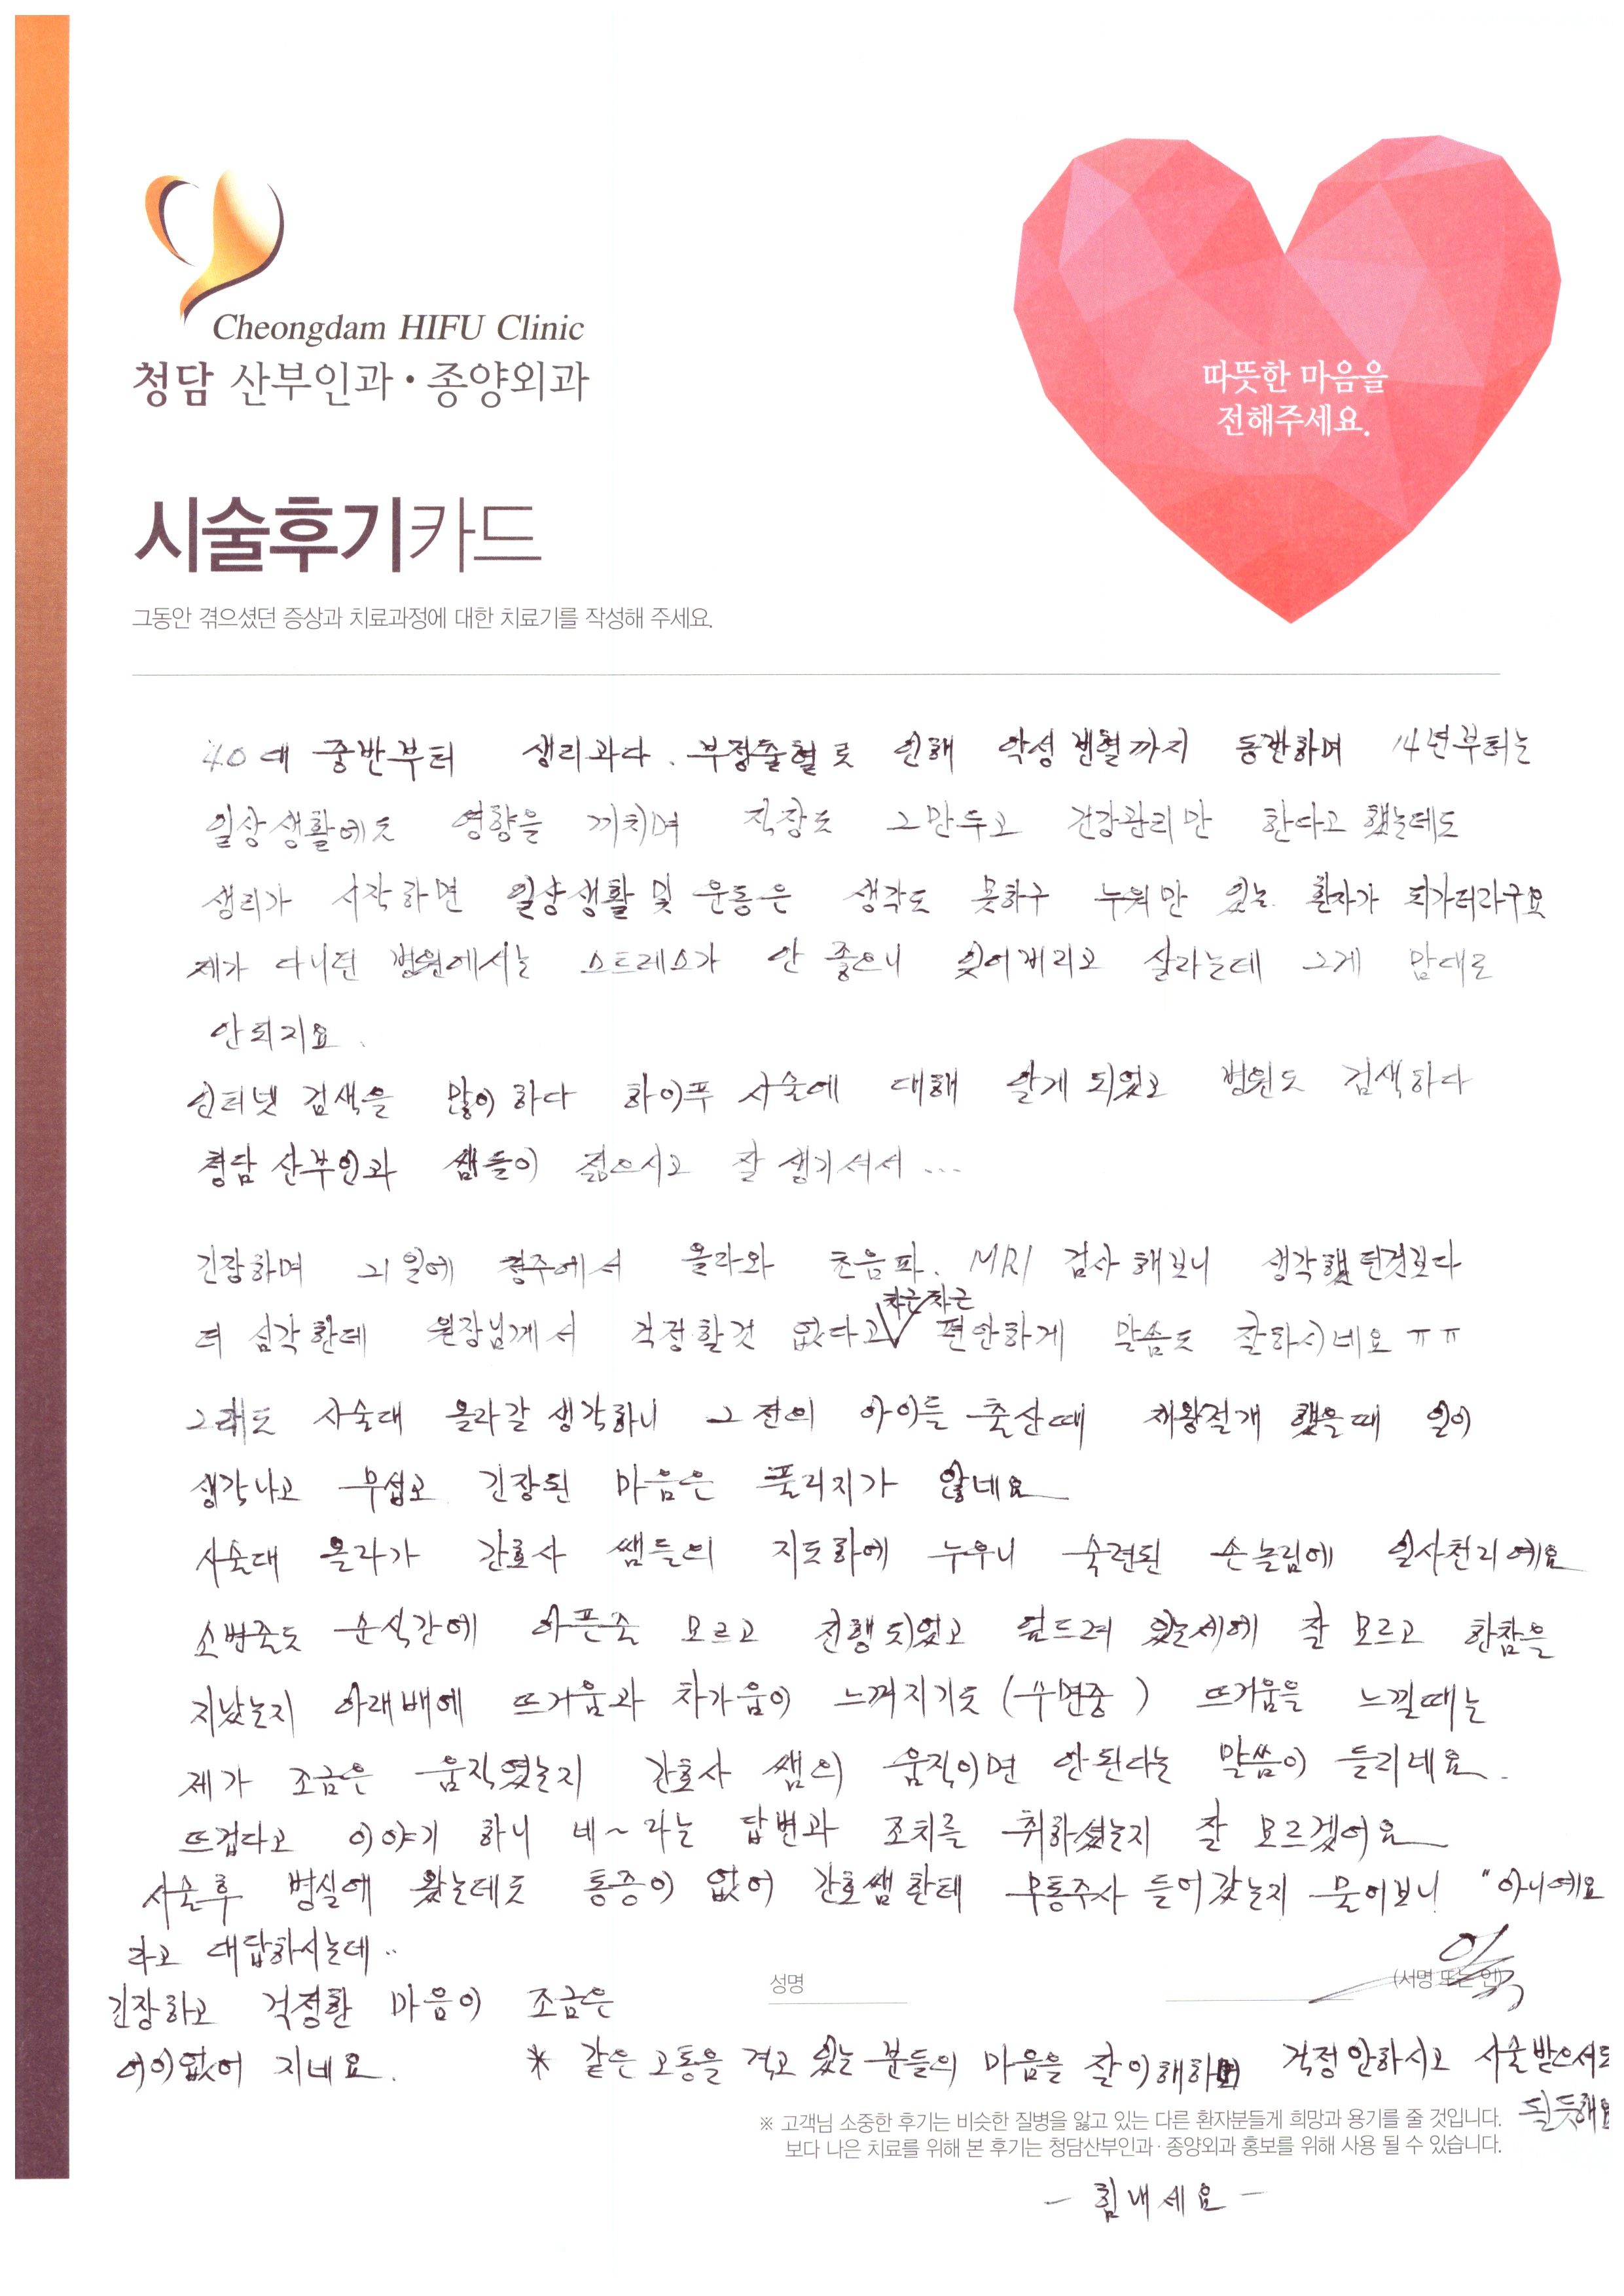 Cheongdam HIFU Clinic
청담 산부인과·종양외과
따뜻한 마음을
전해주세요.
시술후기카드
그동안 겪으셨던 증상과 치료과정에 대한 치료기를 작성해 주세요.
40대 중반부터 생리과다. 부정출혈로 인해 악성빈혈까지 동반하며 14년부터는
일상생활에도 영향을 끼치며 직장도 그만두고 건강관리만 한다고 했는데도
생리가 시작하면 일상생활 및 운동은 생각도 못하구 누워만 있는 환자가 되가더라구요
제가 다니던 병원에서는 스트레스가 안 좋으니 잊어버리고 살라는데 그게 맘대로
안되지요.
인터넷 검색을 많이 하다 하이푸 시술에 대해 알게 되었고 병원도 검색하다
청담 산부인과 쌤들이 젊으시고 잘 생기셔서...
긴장하며 21일에 경주에서 올라와 초음파. MRI 검사 해보니 생각했던것보다
더 심각한데 원장님께서 걱정할것 없다고 차근차근 편안하게 말씀도 잘하시네요 ㅠㅠ
그래도 시술대 올라갈 생각하니 그 전의 아이들 출산때 제왕절개 했을때 일이
생각나고 무섭고 긴장된 마음은 풀리지가 않네요
시술대 올라가 간호사 쌤들의 지도하에 누우니 숙련된 손놀림에 일사천리예요
소변줄도 순식간에 아픈줄 모르고 진행되었고 엎드려 있는새에 잘 모르고 한참을
지났는지 아래배에 뜨거움과 차가움이 느껴지기도 (수면중) 뜨거움을 느낄때는
제가 조금은 움직였는지 간호사 쌤의 움직이면 안된다는 말씀이 들리네요.
뜨겁다고 이야기 하니 네~라는 답변과 조치를 취하셨는지 잘 모르겠어요
시술후 병실에 왔는데도 통증이 없어 간호쌤한테 무통주사 들어갔는지 물어보니 "아니예요
라고 대답하시는데..
성명 (서명 또는 인)
긴장하고 걱정한 마음이 조금은
어이없어 지네요.
* 같은 고통을 겪고 있는 분들의 마음을 잘 이해하며 걱정안하시고 시술받으셔도
될듯해요
※ 고객님 소중한 후기는 비슷한 질병을 앓고 있는 다른 환자분들게 희망과 용기를 줄 것입니다.
보다 나은 치료를 위해 본 후기는 청담산부인과·종양외과 홍보를 위해 사용 될 수 있습니다.
- 힘내세요 -